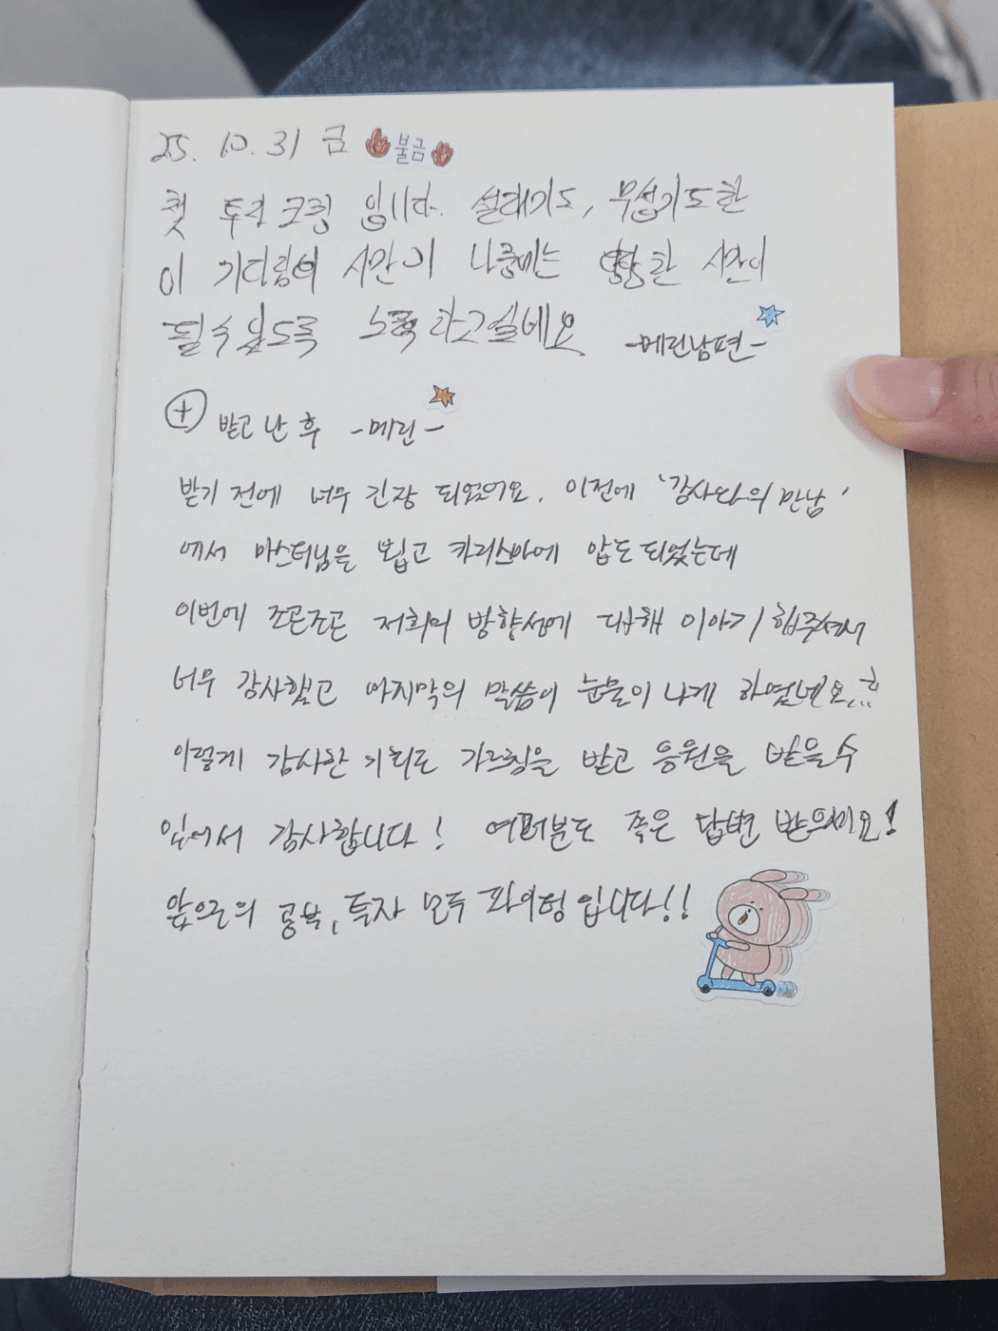 25. 10. 31 금 불금
첫 투자 코칭 입니다. 설레기도, 무섭기도한
이 기다림의 시간이 나중에는 한 시간이
될 수 있도록 노력 하고싶네요 -메린남편-
+ 받고 난 후 -메린-
받기 전에 너무 긴장 되었어요. 이전에 '강사와의 만남'
에서 마스터님을 뵙고 카리스마에 압도 되었는데
이번에 조곤조곤 저희의 방향성에 대해 이야기 해주셔서
너무 감사했고 마지막의 말씀이 눈물이 나게 하였네요..
이렇게 감사한 기회로 가르침을 받고 응원을 받을 수
있어서 감사합니다! 여러분도 좋은 답변 받으세요!
앞으로의 공부, 투자 모두 화이팅 입니다!!